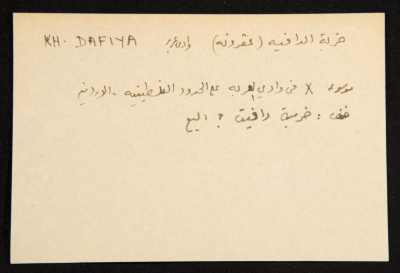 KH. DAFIYA خربة الدافيه (عقرونه) وادي عربه
موسوعة X في وادي العربه مع الحدود الفلسطينيه - الاردنيه
: خربة دافيت ؟